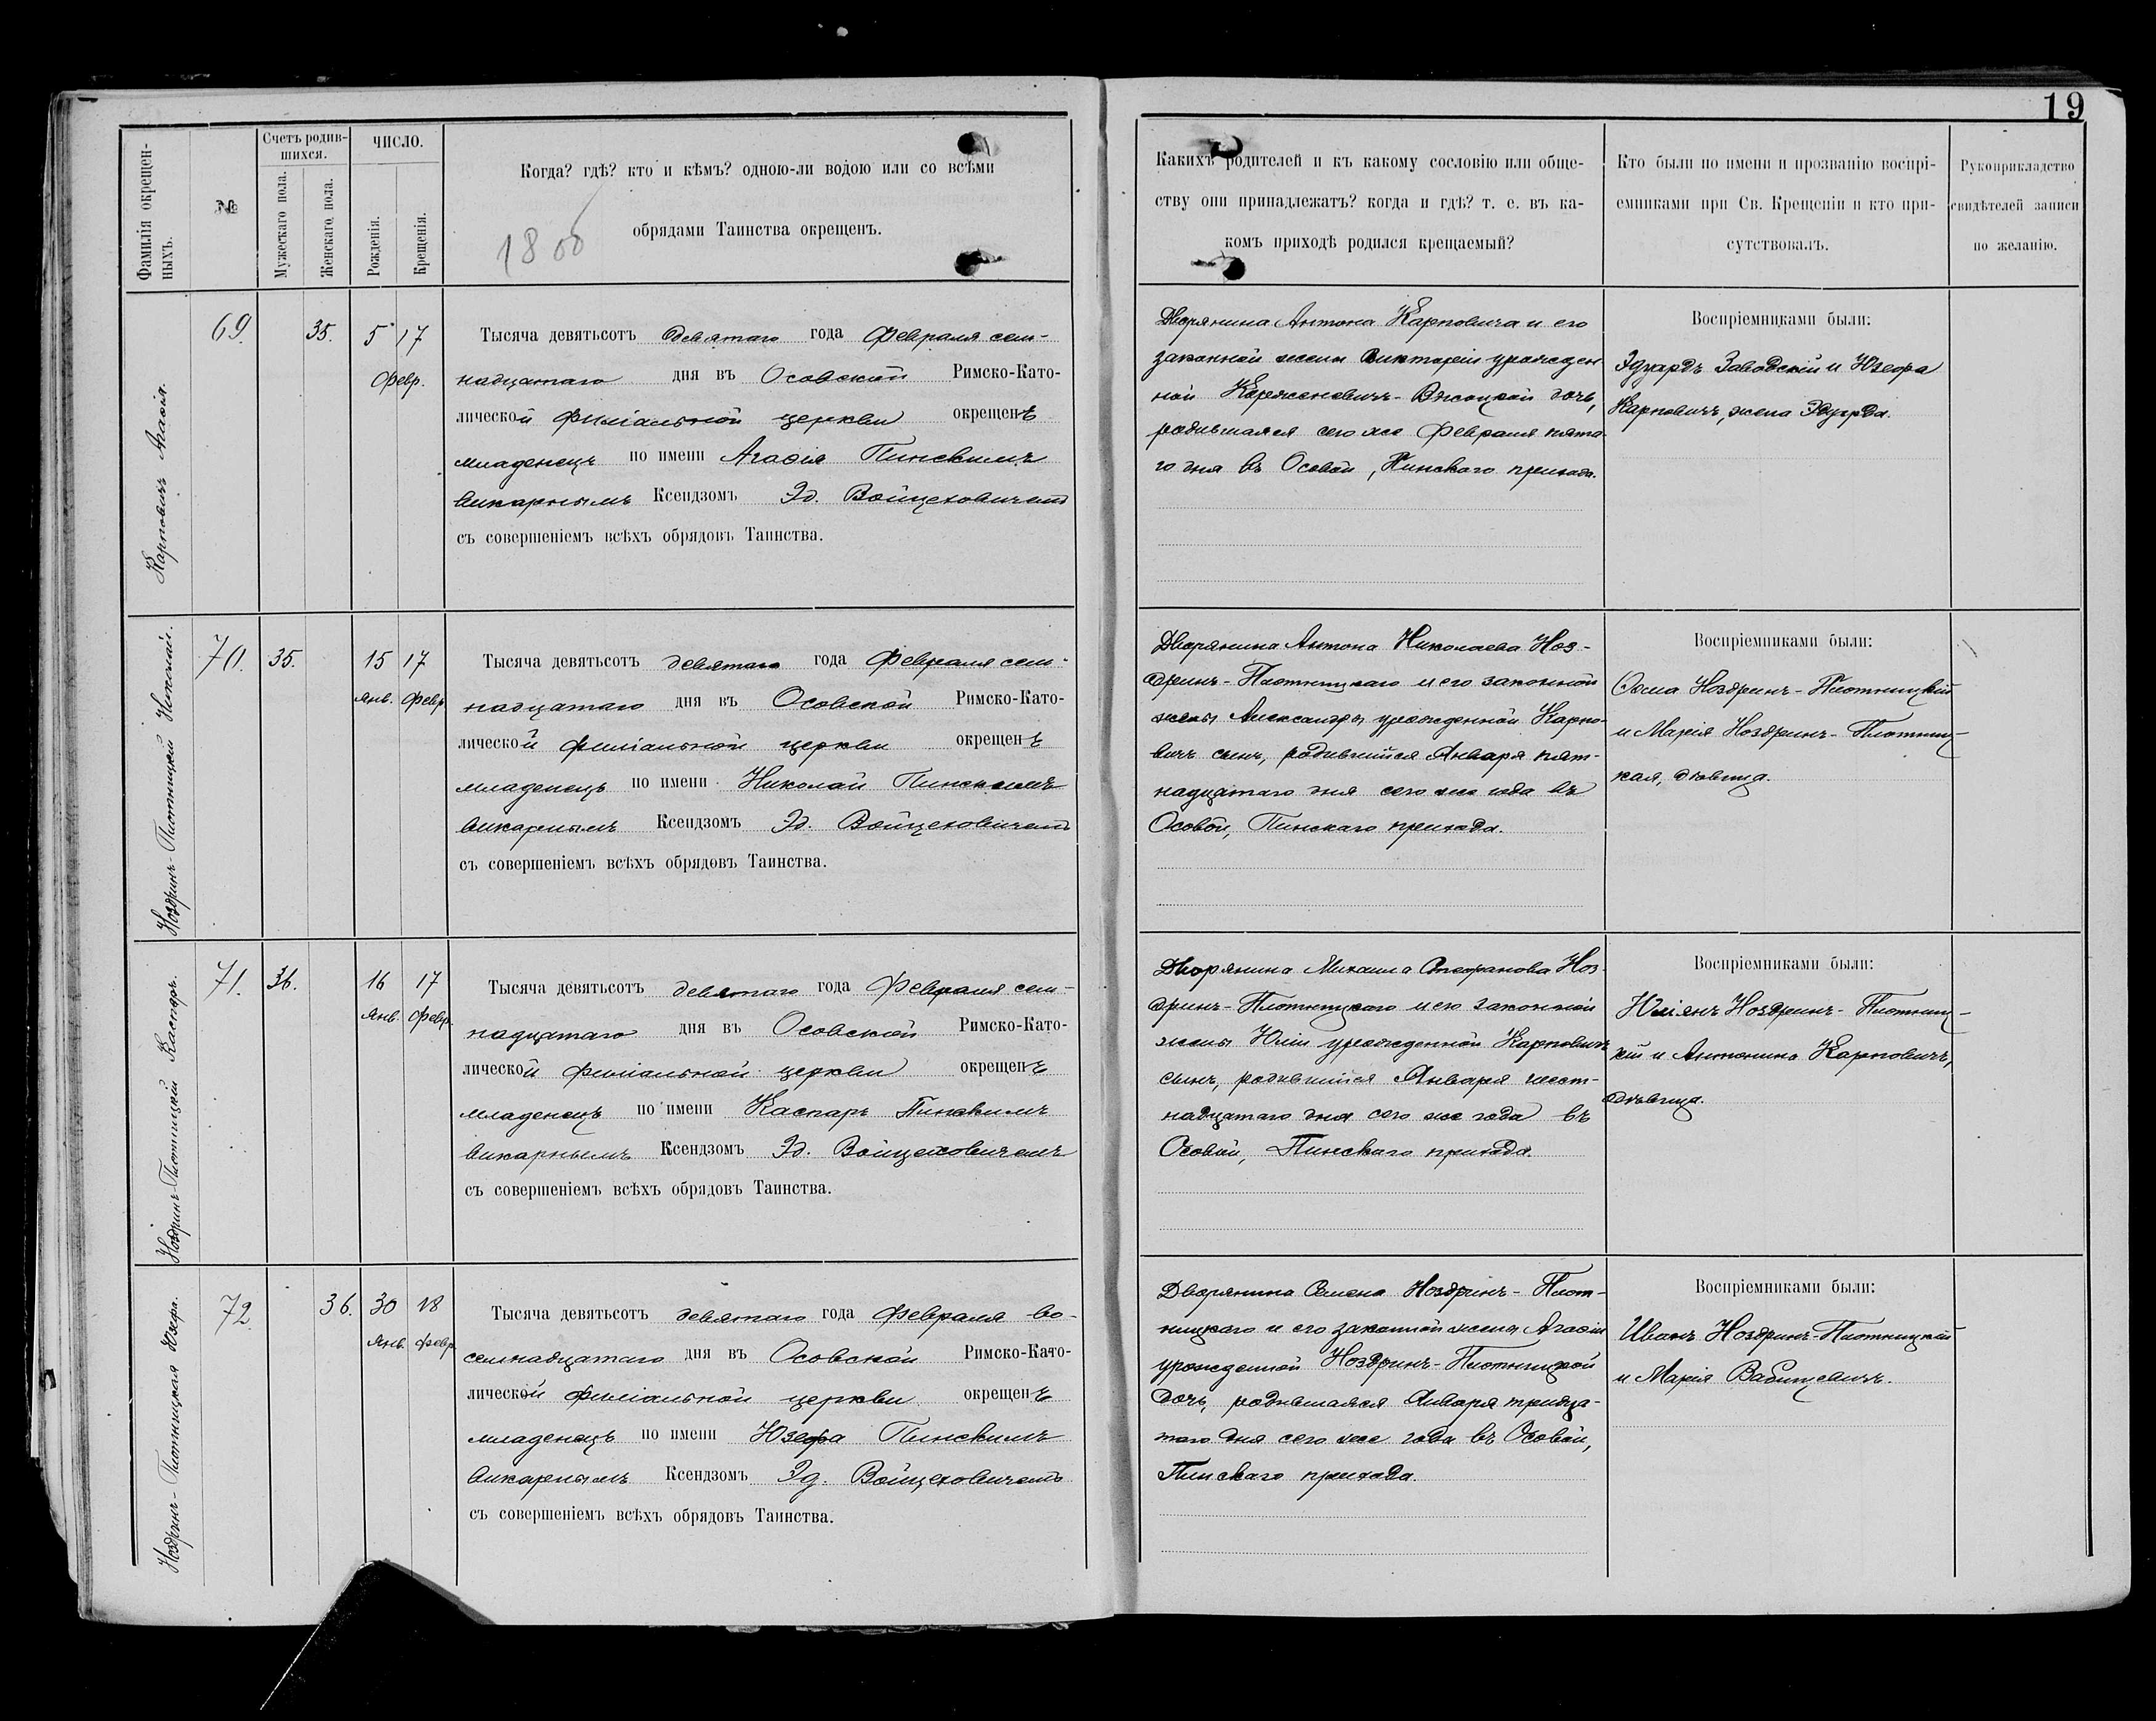 19
Фамилія окрещен-
ныхъ.
№
Счетъ родив-
шихся.
Мужескаго пола.
Женскаго пола.
ЧИСЛО.
Рожденія.
Крещенія.
Когда? гдѣ? кто и кѣмъ? одною-ли водою или со всѣми
обрядами Таинства окрещенъ.
Какихъ родителей и къ какому сословію или обще-
ству они принадлежатъ? когда и гдѣ? т. е. въ ка-
комъ приходѣ родился крещаемый?
Кто были по имени и прозванію воспрі-
емниками при Св. Крещеніи и кто при-
сутствовалъ.
Рукоприкладство
свидѣтелей записи
по желанію.
Карповичъ Агафія.
69.
35.
5 17
Февр.
Тысяча девятьсотъ девятаго года Февраля сем-
надцатаго дня въ Осовской Римско-Като-
лической филіальной церкви окрещенъ
младенецъ по имени Агафія Пинскимъ
викарнымъ Ксендзомъ Эд. Войцеховичемъ
съ совершеніемъ всѣхъ обрядовъ Таинства.
Дворянина Антона Карповича и его
законной жены Викторіи урожден
ной Корженевичъ-Вжоцкой дочь,
родившаяся сего же Февраля пята-
го дня въ Осовой, Пинскаго прихода.
Воспріемниками были:
Эдуардъ Заводскій и Юзефа
Карповичъ, жена Эдуарда.
Ноздринъ-Плотницкій Николай.
70.
35.
15 17
Янв. Февр
Тысяча девятьсотъ девятаго года Февраля сем-
надцатаго дня въ Осовской Римско-Като-
лической филіальной церкви окрещенъ
младенецъ по имени Николай Пинскимъ
викарнымъ Ксендзомъ Эд. Войцеховичемъ
съ совершеніемъ всѣхъ обрядовъ Таинства.
Дворянина Антона Николаева Ноз-
дринъ-Плотницкаго и его законной
жены Александры урожденной Карпо-
вичъ сынъ, родившійся Января пят-
надцатаго дня сего же года въ
Осовой, Пинскаго прихода.
Воспріемниками были:
Ѳома Ноздринъ-Плотницкій
и Марія Ноздринъ-Плотниц-
кая, дѣвица.
Ноздринъ-Плотницкій Каспаръ.
71.
36.
16 17
Янв. Февр.
Тысяча девятьсотъ девятаго года Февраля сем-
надцатаго дня въ Осовской Римско-Като-
лической филіальной церкви окрещенъ
младенецъ по имени Каспаръ Пинскимъ
викарнымъ Ксендзомъ Эд. Войцеховичемъ
съ совершеніемъ всѣхъ обрядовъ Таинства.
Дворянина Михаила Стефанова Ноз-
дринъ-Плотницкаго и его законной
жены Юліи урожденной Карповичъ
сынъ, родившійся Января шест-
надцатаго дня сего же года въ
Осовой, Пинскаго прихода.
Воспріемниками были:
Юліянъ Ноздринъ-Плотниц-
кій и Антонина Карповичъ,
дѣвица.
Ноздринъ-Плотницкая Юзефа.
72.
36.
30 18
Янв. Февр.
Тысяча девятьсотъ девятаго года Февраля во-
семнадцатаго дня въ Осовской Римско-Като-
лической филіальной церкви окрещенъ
младенецъ по имени Юзефа Пинскимъ
викарнымъ Ксендзомъ Эд. Войцеховичемъ
съ совершеніемъ всѣхъ обрядовъ Таинства.
Дворянина Семена Ноздринъ-Плот-
ницкаго и его законной жены Агафіи
урожденной Ноздринъ-Плотницкой
дочь, родившаяся Января тридца-
таго дня сего же года въ Осовой,
Пинскаго прихода.
Воспріемниками были:
Иванъ Ноздринъ-Плотницкій
и Марія Вабищевичъ.